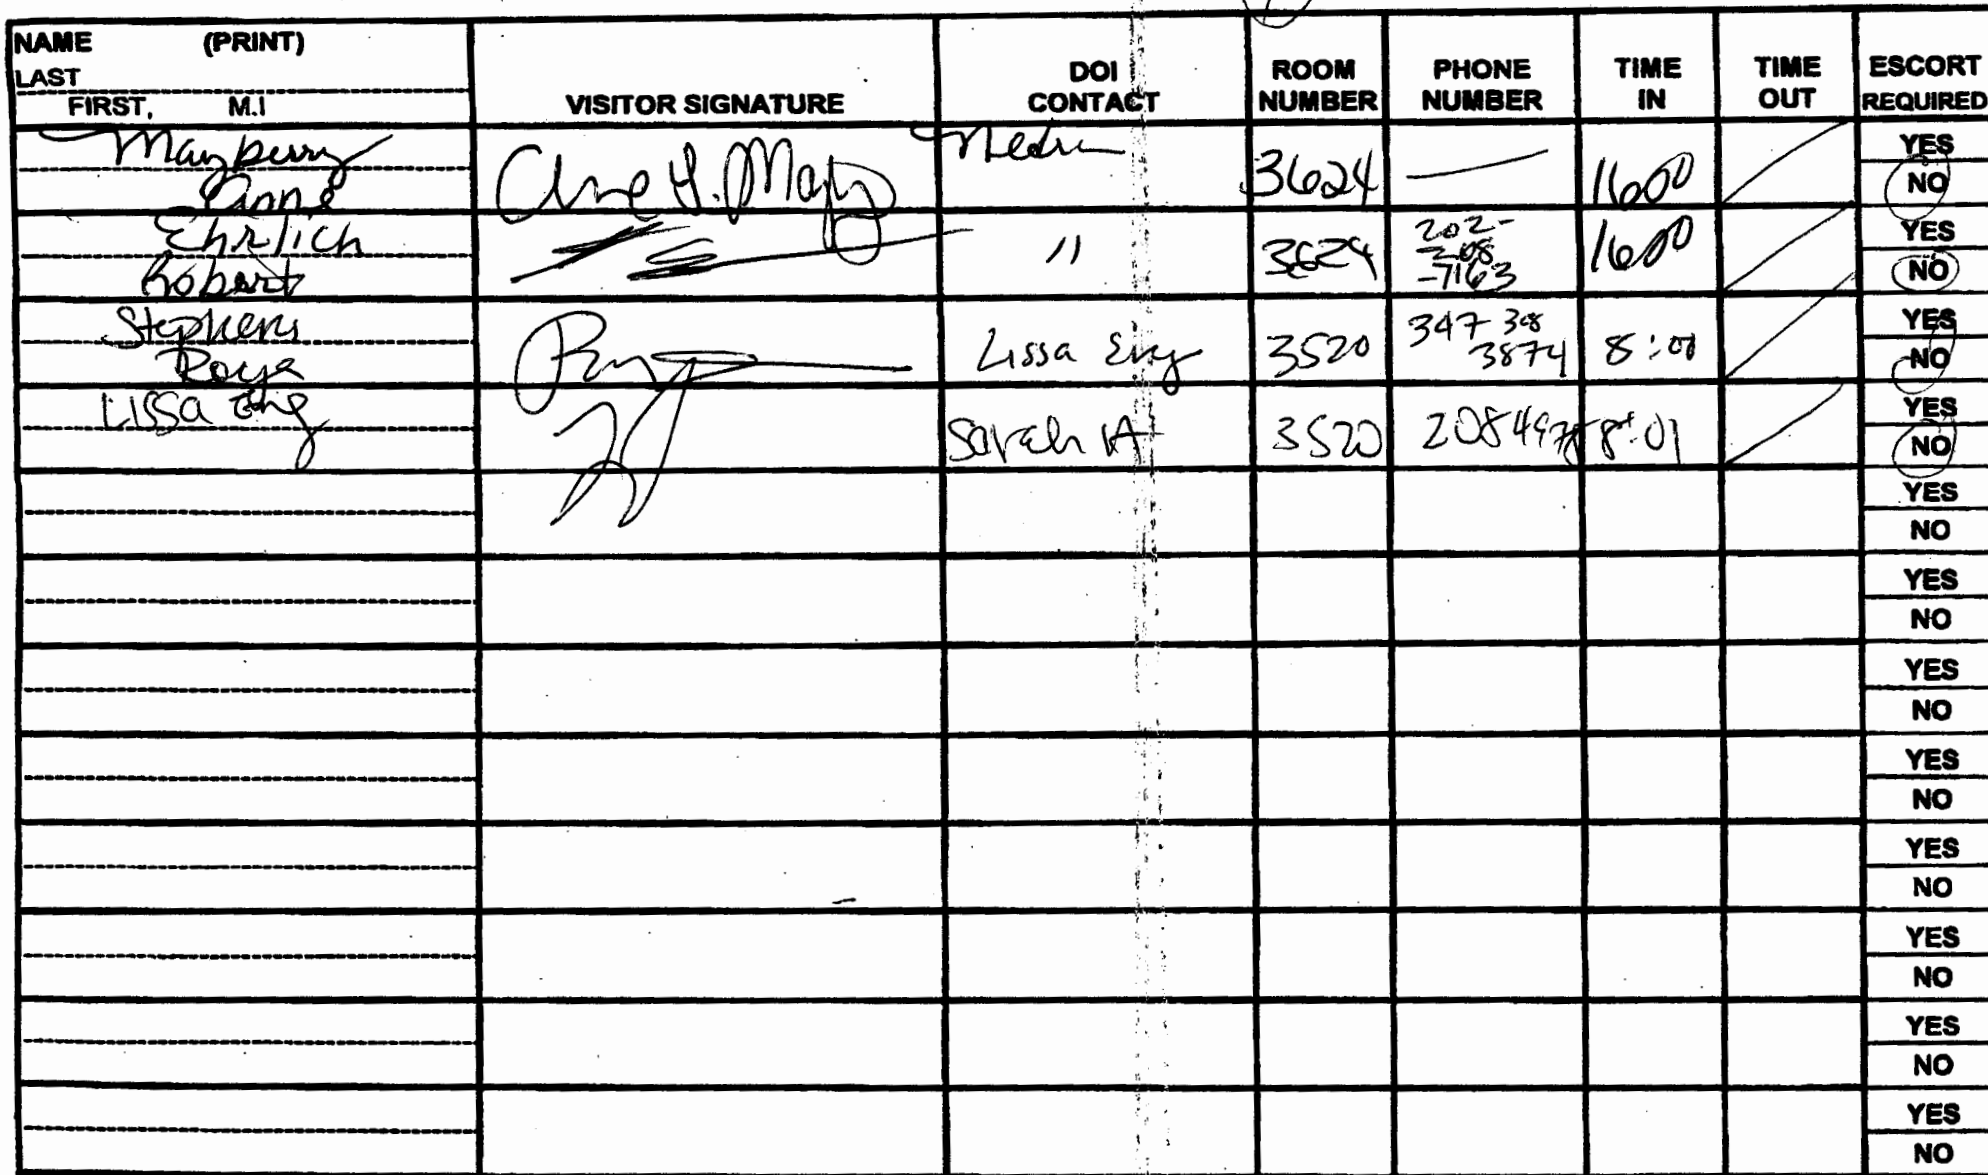 NAME (PRINT)
LAST
FIRST, M.I
VISITOR SIGNATURE
DOI
CONTACT
ROOM
NUMBER
PHONE
NUMBER
TIME
IN
TIME
OUT
ESCORT
REQUIRED
Mayberry
Anne
3624
—
1600
YES
NO
Ehrlich
Robert
"
3624
202-
208
-7163
1600
YES
NO
Stephens
Roya
Lissa Eng
3520
3874
8:00
YES
NO
Lissa Eng
Sarah
3520
8:01
YES
NO
YES
NO
YES
NO
YES
NO
YES
NO
YES
NO
YES
NO
YES
NO
YES
NO